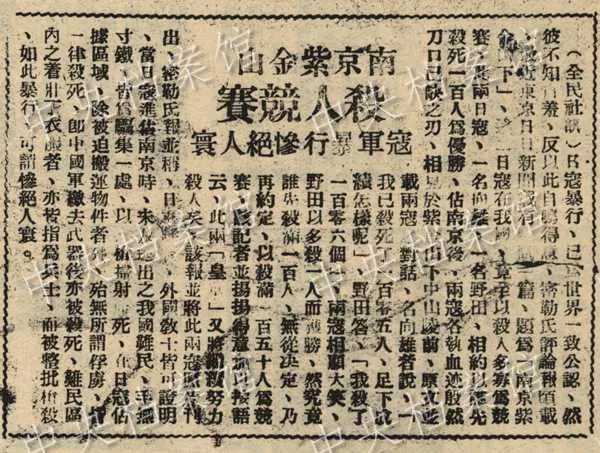 南京紫金山
殺人競賽
寇軍暴行慘絕人寰
（全民社訊）日寇暴行、已為世界一致公認、然
彼不知羞、反以此自鳴得意、密勒氏評論報頃載
、最近東京日日新聞載有一篇、題為南京紫
金山下」、二日寇在我國竟至以殺人多寡為競
賽、此兩日寇、一名向雄、一名野田、相約以首先
殺死一百人為優勝、佔南京後、兩寇各執血迹殷然
刀口已缺之刃、相見於紫金山下中山陵前、原文並
載兩寇對話、名向雄者說、「
我已殺死了一百零五人、足下成
績怎樣呢」、野田答、「我殺了
一百零六個」、兩寇相顧大笑、
野田以多殺一人而獲勝、然究竟
誰先殺滿一百人、無從決定、乃
再約定、以殺滿一百五十人為競
賽、該記者並揚揚得意加以按語
云、此兩「皇軍」又將繼續努力
殺人矣、該報並將此兩寇照片刊
出、密勒氏報並稱、日寇暴行、外國教士皆可證明
、當日寇進佔南京時、未及逃出之我國難民、手無
寸鐵、皆為驅集一處、以機槍掃射而死、在日寇佔
據區域、除被迫搬運物件者外、殆無所謂俘虜、
一律殺死、即中國軍繳去武器後亦被殺死、難民區
內之着壯丁衣服者、亦被指為兵士、而被整批槍殺
、如此暴行、可謂慘絕人寰。
中央档案馆
中央档案馆
中央档案馆